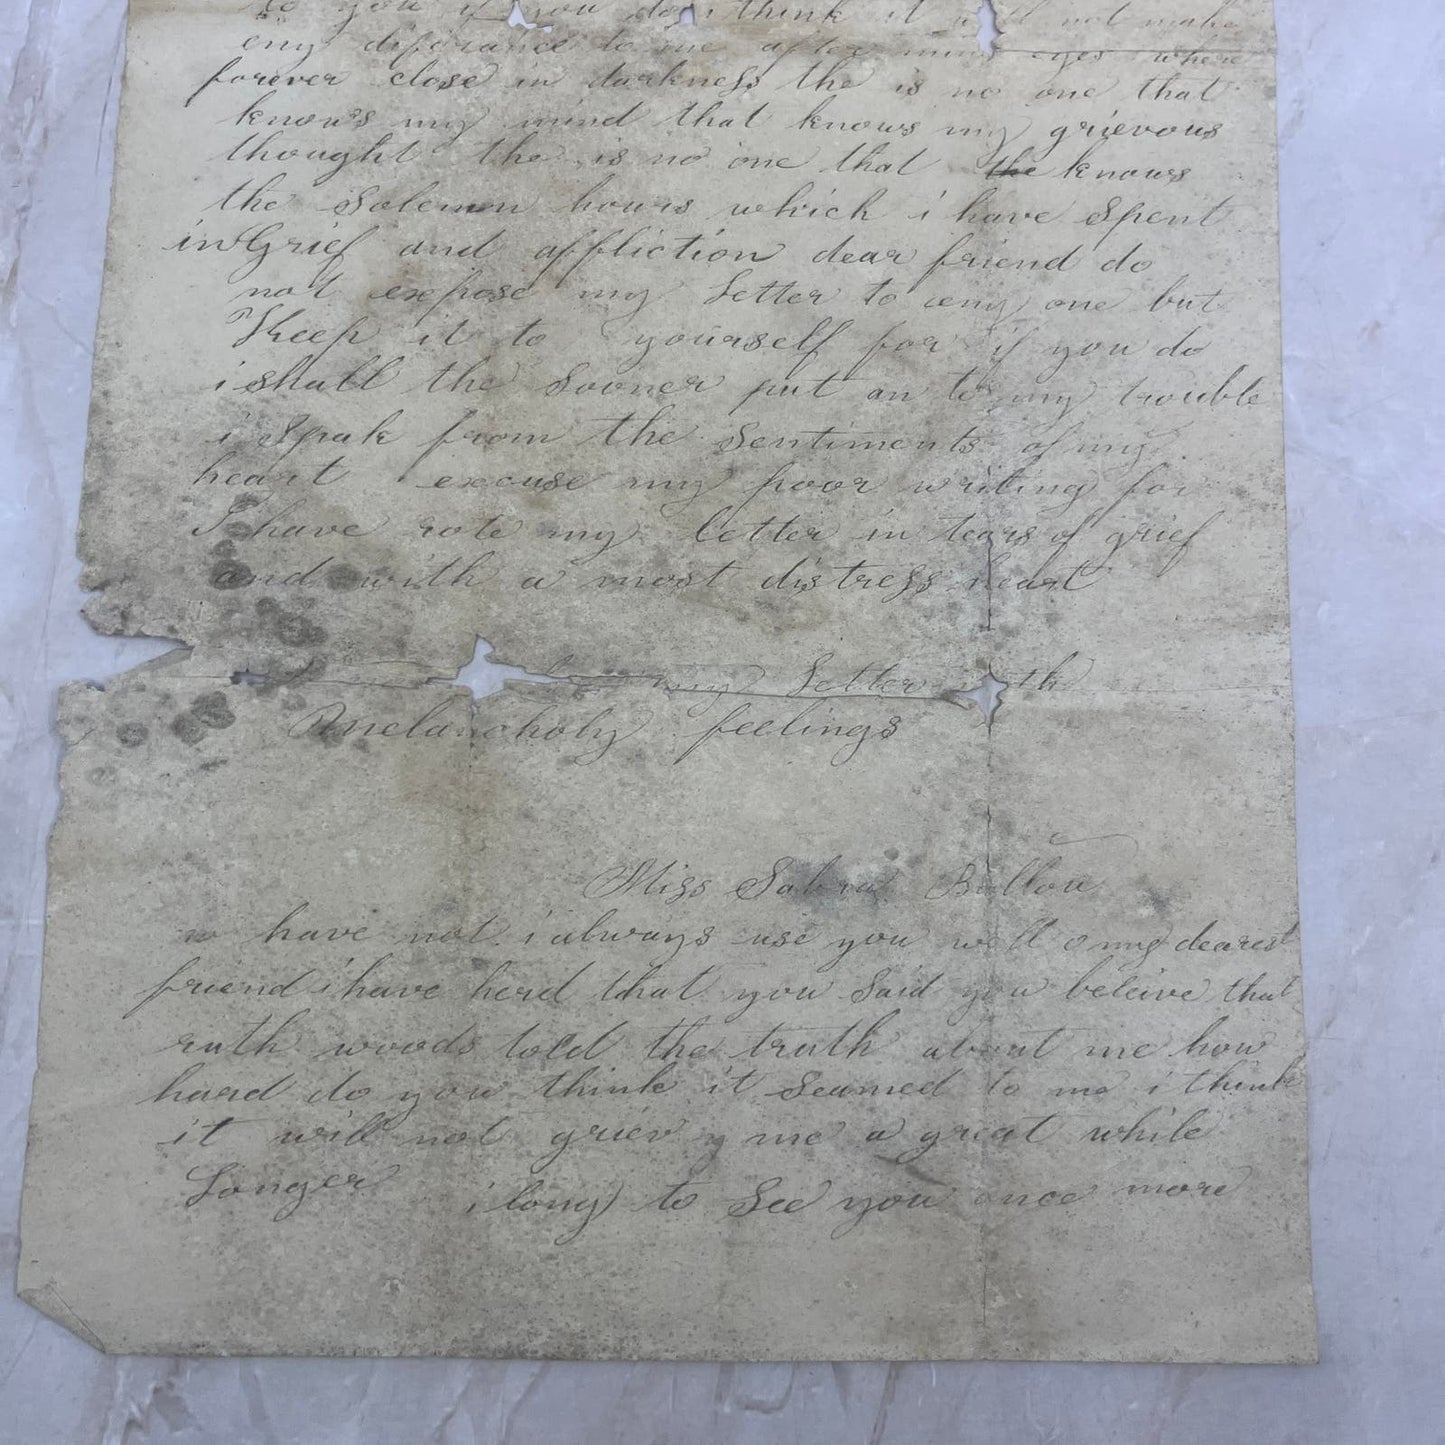 to you if you do i think it will not make
eny diforance to me after mine eyes where
forever close in darkness the is no one that
knows my mind that knows my grievous
thought the is no one that the knows
the Solemn hours which i have Spent
in Grief and affliction dear friend do
not expose my Letter to eny one but
Keep it to yourself for if you do
i shall the Sooner put an to my trouble
i Speak from the Sentiments of my
heart excuse my poor writing for
I have rote my letter in tears of grief
and with a most distress heart
my Letter with
Melancholy feelings
Miss Sabra Ballou
have not i always use you well o my dearest
friend i have herd that you Said you beleive that
ruth woods told the truth about me how
hard do you think it Seamed to me i think
it will not griev me a great while
Longer i long to See you once more